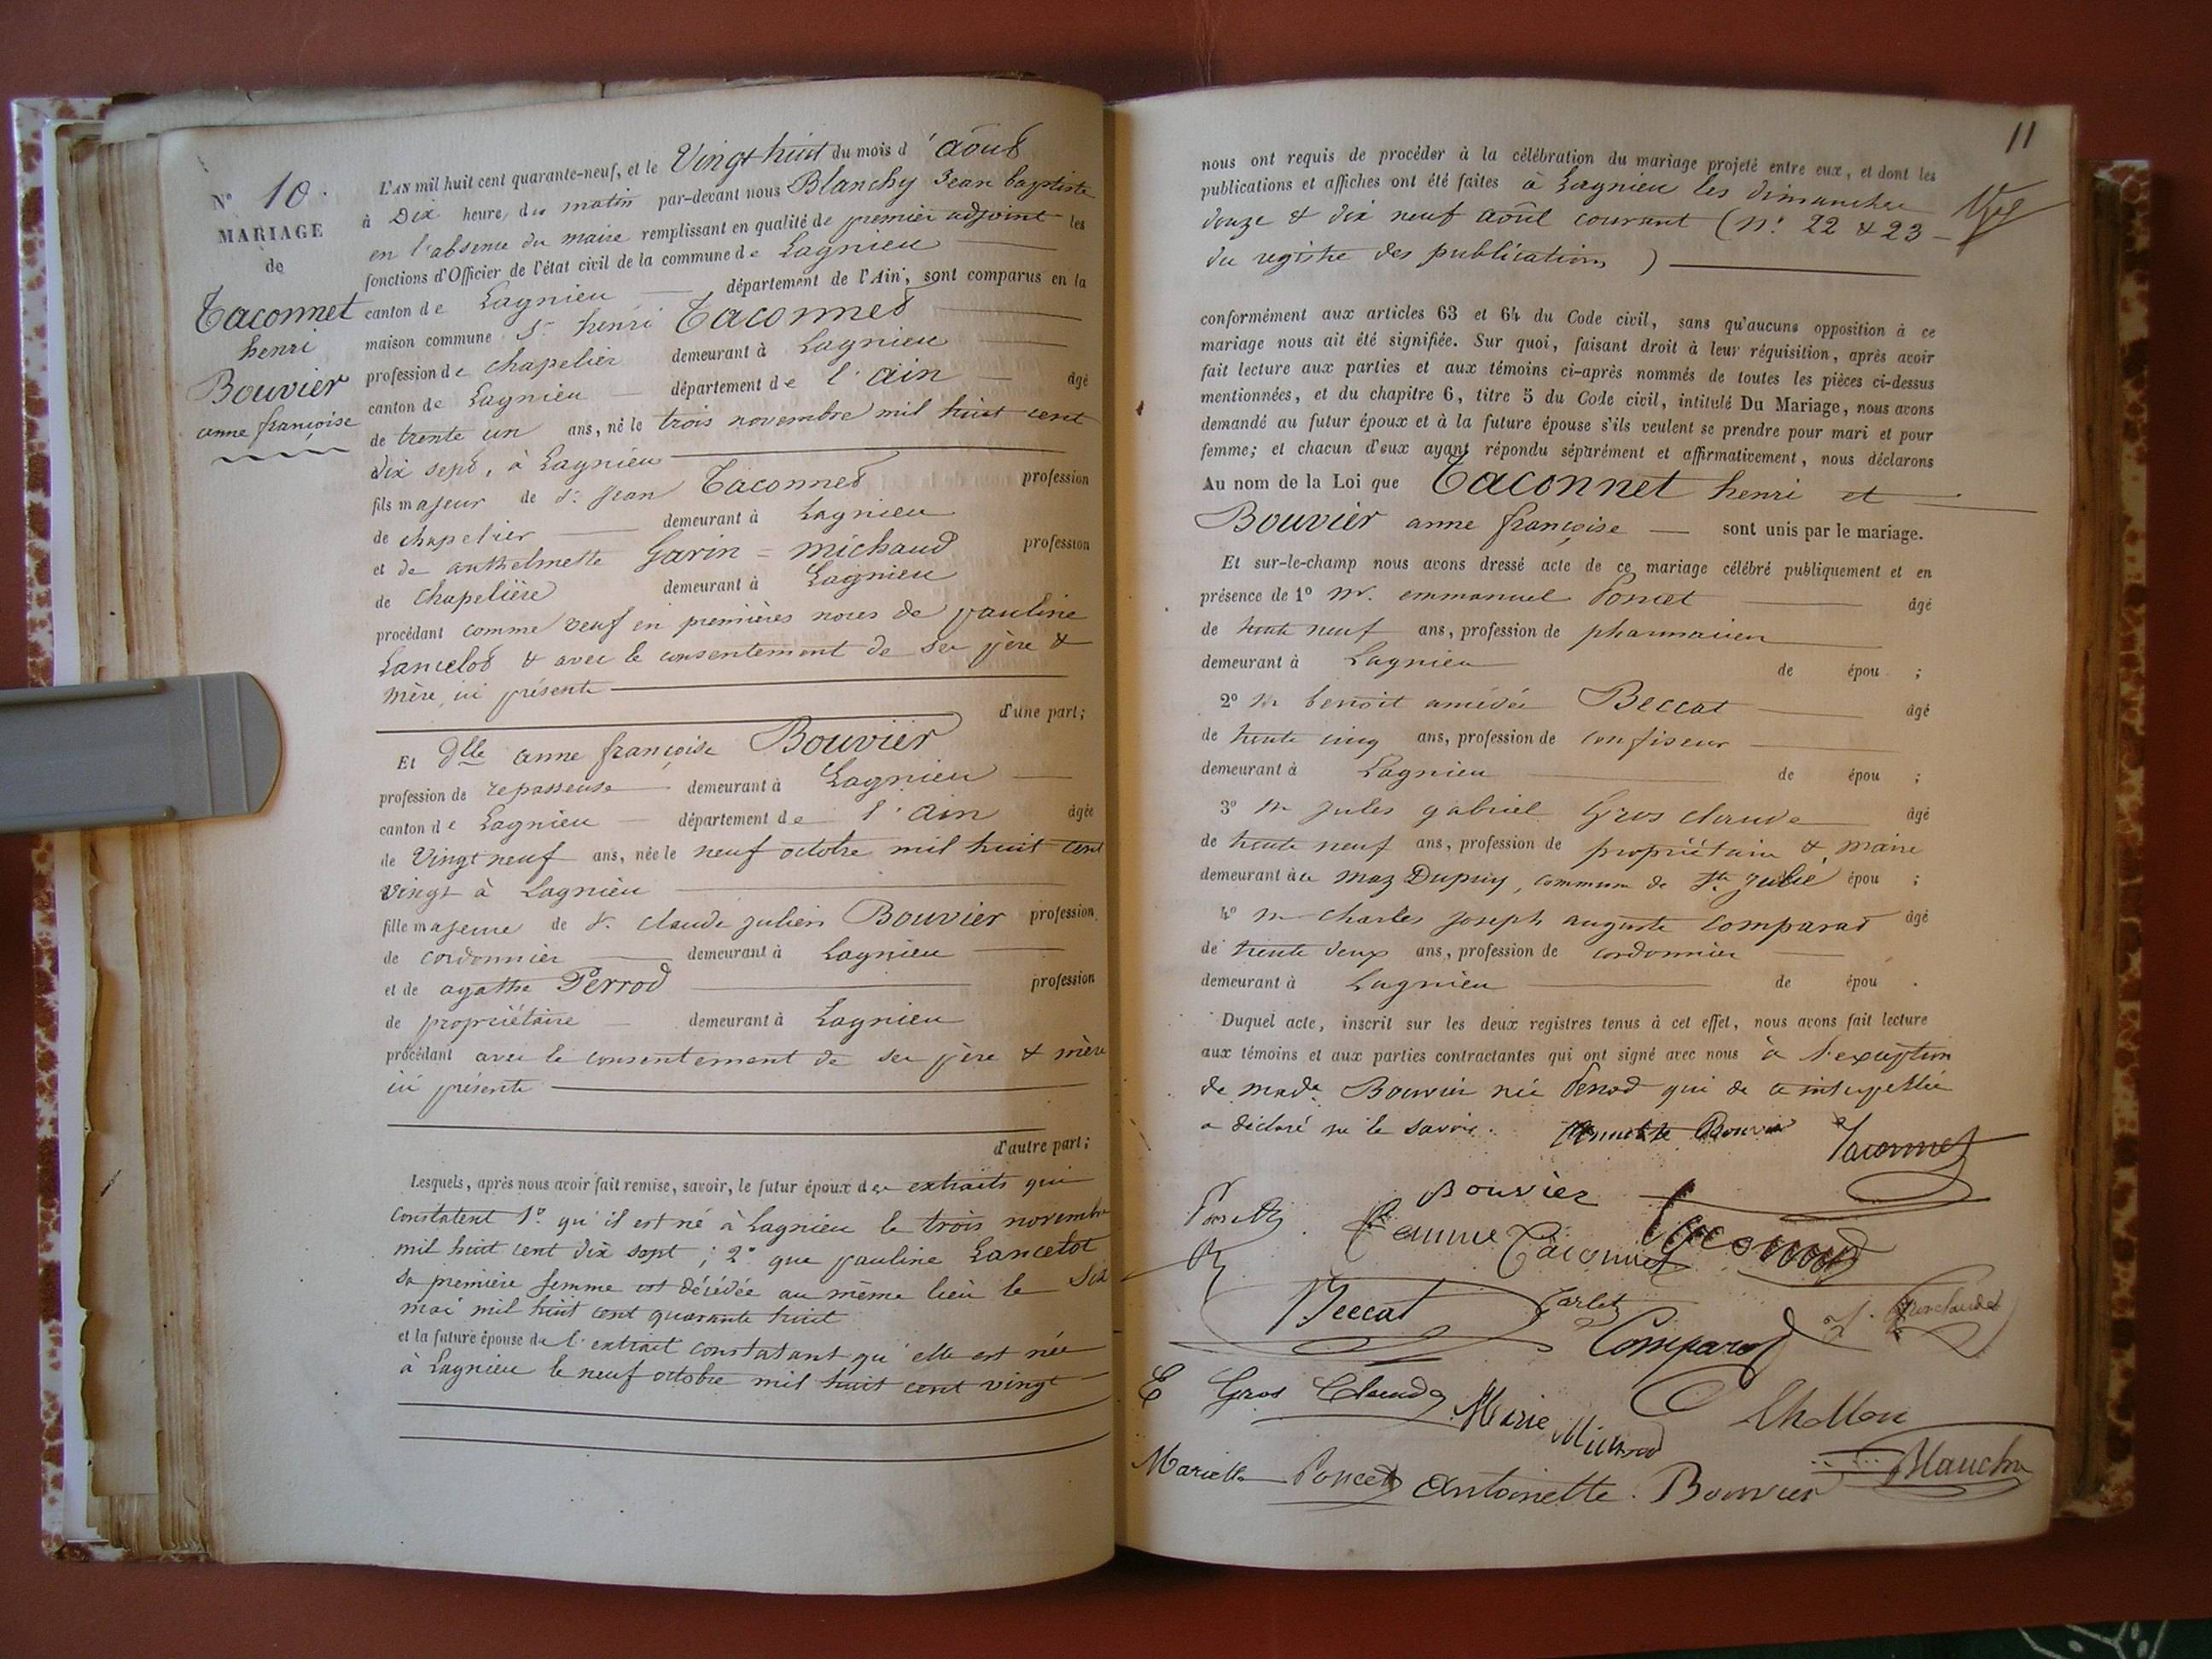 N° 10.
MARIAGE
de
Taconnet
henri
Bouvier
anne françoise
L'AN mil huit cent quarante-neuf, et le Vingt huit du mois d'aout
à Dix heure, du matin par-devant nous Blanchy Jean baptiste
en l'absence du maire remplissant en qualité de premier adjoint les
fonctions d'Officier de l'état civil de la commune de Lagnieu
canton de Lagnieu département de l'Ain, sont comparus en la
maison commune Sr henri Taconnet
profession de chapelier demeurant à Lagnieu
canton de Lagnieu département de l'ain âgé
de trente un ans, né le trois novembre mil huit cent
dix sept, à Lagnieu
fils majeur de Sr Jean Taconnet profession
de chapelier demeurant à Lagnieu
et de anthelmette Garin = michaud profession
de Chapelière demeurant à Lagnieu
procédant comme veuf en premières noces de pauline
Lancelot & avec le consentement de ses père &
mère, ici présents
d'une part;
Et dlle anne françoise Bouvier
profession de repasseuse demeurant à Lagnieu
canton de Lagnieu département de l'ain âgée
de Vingt neuf ans, née le neuf octobre mil huit cent
vingt à Lagnieu
fille majeure de Sr. claude julien Bouvier profession
de cordonnier demeurant à Lagnieu
et de agathe Perrod profession
de propriétaire demeurant à Lagnieu
procédant avec le consentement de ses père & mère
ici présents
d'autre part;
Lesquels, après nous avoir fait remise, savoir, le futur époux des extraits qui
constatent 1° qu'il est né à Lagnieu le trois novembre
mil huit cent dix sept; 2° que pauline Lancelot
sa première femme est décédée au même lieu le Six
mai mil huit cent quarante huit
et la future épouse de l'extrait constatant qu'elle est née
à Lagnieu le neuf octobre mil huit cent vingt
11
nous ont requis de procéder à la célébration du mariage projeté entre eux, et dont les
publications et affiches ont été faites à Lagnieu les dimanches
douze & dix neuf août courant (n° 22 & 23
du registre des publications)
conformément aux articles 63 et 64 du Code civil, sans qu'aucune opposition à ce
mariage nous ait été signifiée. Sur quoi, faisant droit à leur réquisition, après avoir
fait lecture aux parties et aux témoins ci-après nommés de toutes les pièces ci-dessus
mentionnées, et du chapitre 6, titre 5 du Code civil, intitulé Du Mariage, nous avons
demandé au futur époux et à la future épouse s'ils veulent se prendre pour mari et pour
femme; et chacun d'eux ayant répondu séparément et affirmativement, nous déclarons
Au nom de la Loi que Taconnet henri et
Bouvier anne françoise sont unis par le mariage.
Et sur-le-champ nous avons dressé acte de ce mariage célébré publiquement et en
présence de 1° mr. emmanuel Poncet âgé
de trente neuf ans, profession de pharmacien
demeurant à Lagnieu de épou ;
2° mr benoit amédée Beccat âgé
de trente cinq ans, profession de confiseur
demeurant à Lagnieu de épou ;
3° mr Jules gabriel Gros claude âgé
de trente neuf ans, profession de propriétaire & maire
demeurant au maz Dupuy, commune de Ste Julie épou ;
4° mr charles joseph auguste Comparat âgé
de trente deux ans, profession de cordonnier
demeurant à Lagnieu de épou .
Duquel acte, inscrit sur les deux registres tenus à cet effet, nous avons fait lecture
aux témoins et aux parties contractantes qui ont signé avec nous à l'exception
de made Bouvier née Perrod qui de ce interpellée
a déclaré ne le savoir. Bouvier Taconnet
Bouvier
Poncet femme Taconnet Taconnet
Beccat Comparat J. Grosclaude
E Gros Claude Marie
Mariette Poncet Antoinette Bouvier Blanchy